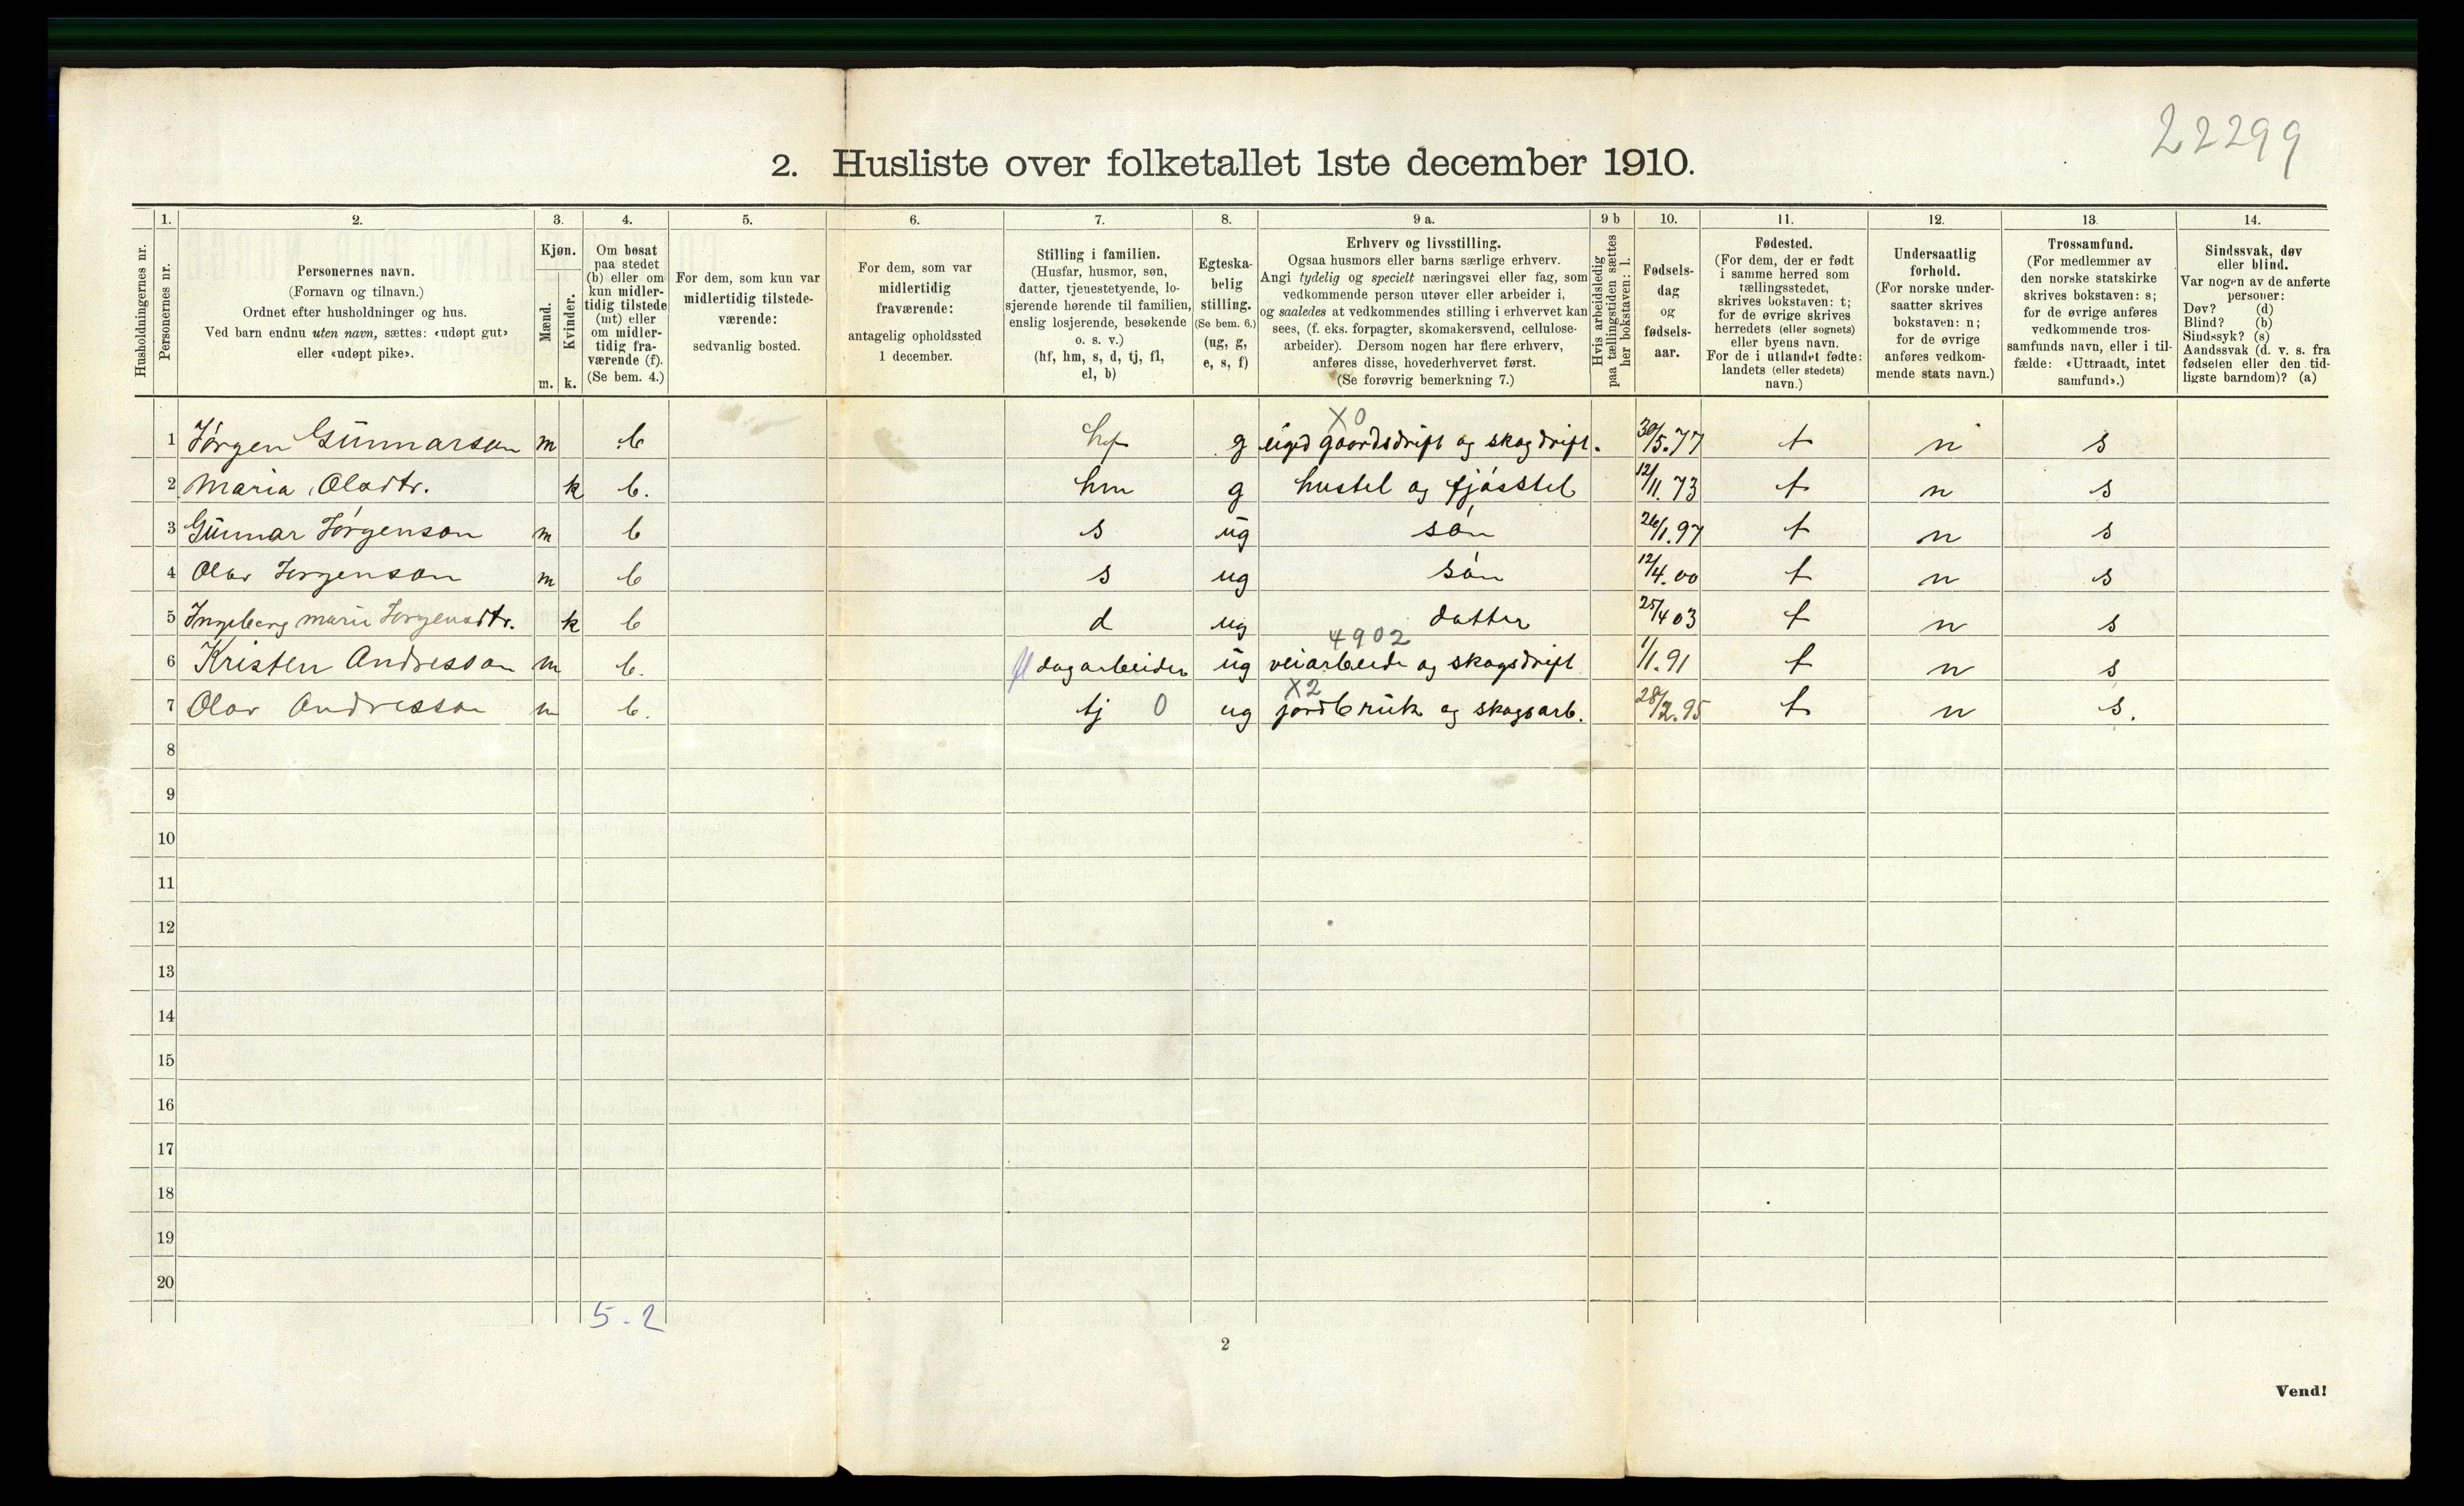 22299
2. Husliste over folketallet 1ste december 1910.
1. 2. 3. 4. 5. 6. 7. 8. 9 a. 9 b 10. 11. 12. 13. 14.
Husholdningernes nr.
Personernes nr.
Personernes navn.
(Fornavn og tilnavn.)
Ordnet efter husholdninger og hus.
Ved barn endnu uten navn, sættes: «udøpt gut»
eller «udøpt pike».
Kjøn.
Mænd.
Kvinder.
m. k.
Om bosat
paa stedet
(b) eller om
kun midler-
tidig tilstede
(mt) eller
om midler-
tidig fra-
værende (f).
(Se bem. 4.)
For dem, som kun var
midlertidig tilstede-
værende:
sedvanlig bosted.
For dem, som var
midlertidig
fraværende:
antagelig opholdssted
1 december.
Stilling i familien.
(Husfar, husmor, søn,
datter, tjenestetyende, lo-
sjerende hørende til familien,
enslig losjerende, besøkende
o. s. v.)
(hf, hm, s, d, tj, fl,
el, b)
Egteska-
belig
stilling.
(Se bem. 6.)
(ug, g,
e, s, f)
Erhverv og livsstilling.
Ogsaa husmors eller barns særlige erhverv.
Angi tydelig og specielt næringsvei eller fag, som
vedkommende person utøver eller arbeider i,
og saaledes at vedkommendes stilling i erhvervet kan
sees, (f. eks. forpagter, skomakersvend, cellulose-
arbeider). Dersom nogen har flere erhverv,
anføres disse, hovederhvervet først.
(Se forøvrig bemerkning 7.)
Hvis arbeidsledig
paa tællingstiden sættes
her bokstaven: l.
Fødsels-
dag
og
fødsels-
aar.
Fødested.
(For dem, der er født
i samme herred som
tællingsstedet,
skrives bokstaven: t;
for de øvrige skrives
herredets (eller sognets)
eller byens navn.
For de i utlandet fødte:
landets (eller stedets)
navn.)
Undersaatlig
forhold.
(For norske under-
saatter skrives
bokstaven: n;
for de øvrige
anføres vedkom-
mende stats navn.)
Trossamfund.
(For medlemmer av
den norske statskirke
skrives bokstaven: s;
for de øvrige anføres
vedkommende tros-
samfunds navn, eller i til-
fælde: «Uttraadt, intet
samfund».)
Sindssvak, døv
eller blind.
Var nogen av de anførte
personer:
Døv? (d)
Blind? (b)
Sindssyk? (s)
Aandssvak (d. v. s. fra
fødselen eller den tid-
ligste barndom)? (a)
X0
1 Jørgen Gunnarson m b hf g eigd gaardsdrift og skogdrift. 30/5.77 t n s
2 Maria Olsdtr. k b. hm g hustel og fjósstel 12/11.73 t n s
3 Gunnar Jørgenson m b s ug són 26/1.97 t n s
4 Olav Jørgenson m b s ug són 12/4.00 t n s
5 Ingeborg Marie Jørgensdtr. k b d ug datter 25/4 03 t n s
4902
6 Kristen Andresson m b. fl dagarbeider ug veiarbeide og skogsdrift 1/1.91 t n s
X2
7 Olav Andresson m b. tj 0 ug jordbruk og skogsarb. 28/2.95 t n s.
8
9
10
11
12
13
14
15
16
17
18
19
20
5 - 2
2
Vend!